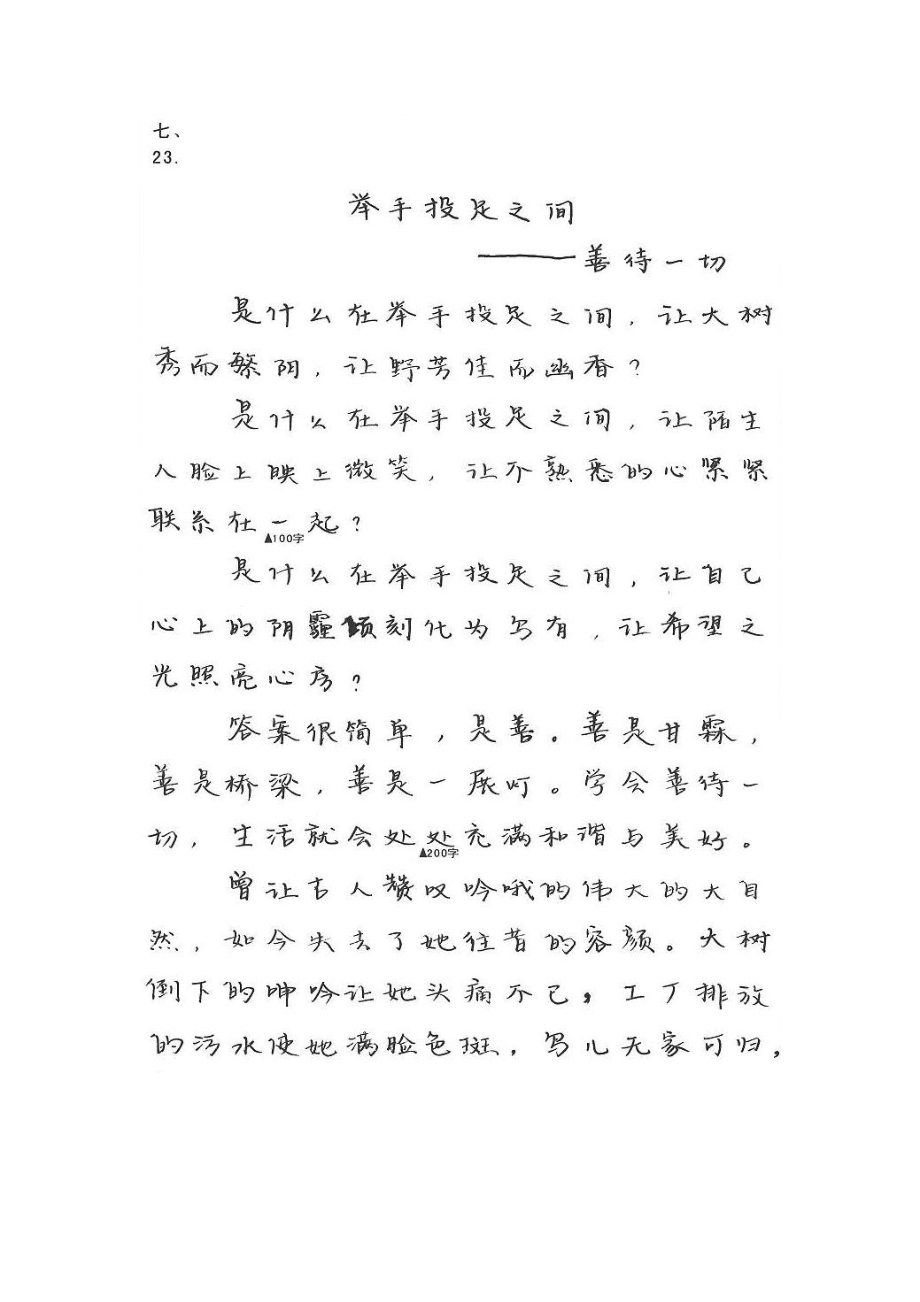 七、
23.
举手投足之间
——善待一切
是什么在举手投足之间，让大树
秀而繁阴，让野芳佳而幽香？
是什么在举手投足之间，让陌生
人脸上映上微笑，让不熟悉的心紧紧
联系在一起？
▲100字
是什么在举手投足之间，让自己
心上的阴霾顷刻化为乌有，让希望之
光照亮心房？
答案很简单，是善。善是甘霖，
善是桥梁，善是一盏灯。学会善待一
切，生活就会处处充满和谐与美好。
▲200字
曾让古人赞叹吟哦的伟大的大自
然，如今失去了她往昔的容颜。大树
倒下的呻吟让她头痛不已，工厂排放
的污水使她满脸色斑，鸟儿无家可归，